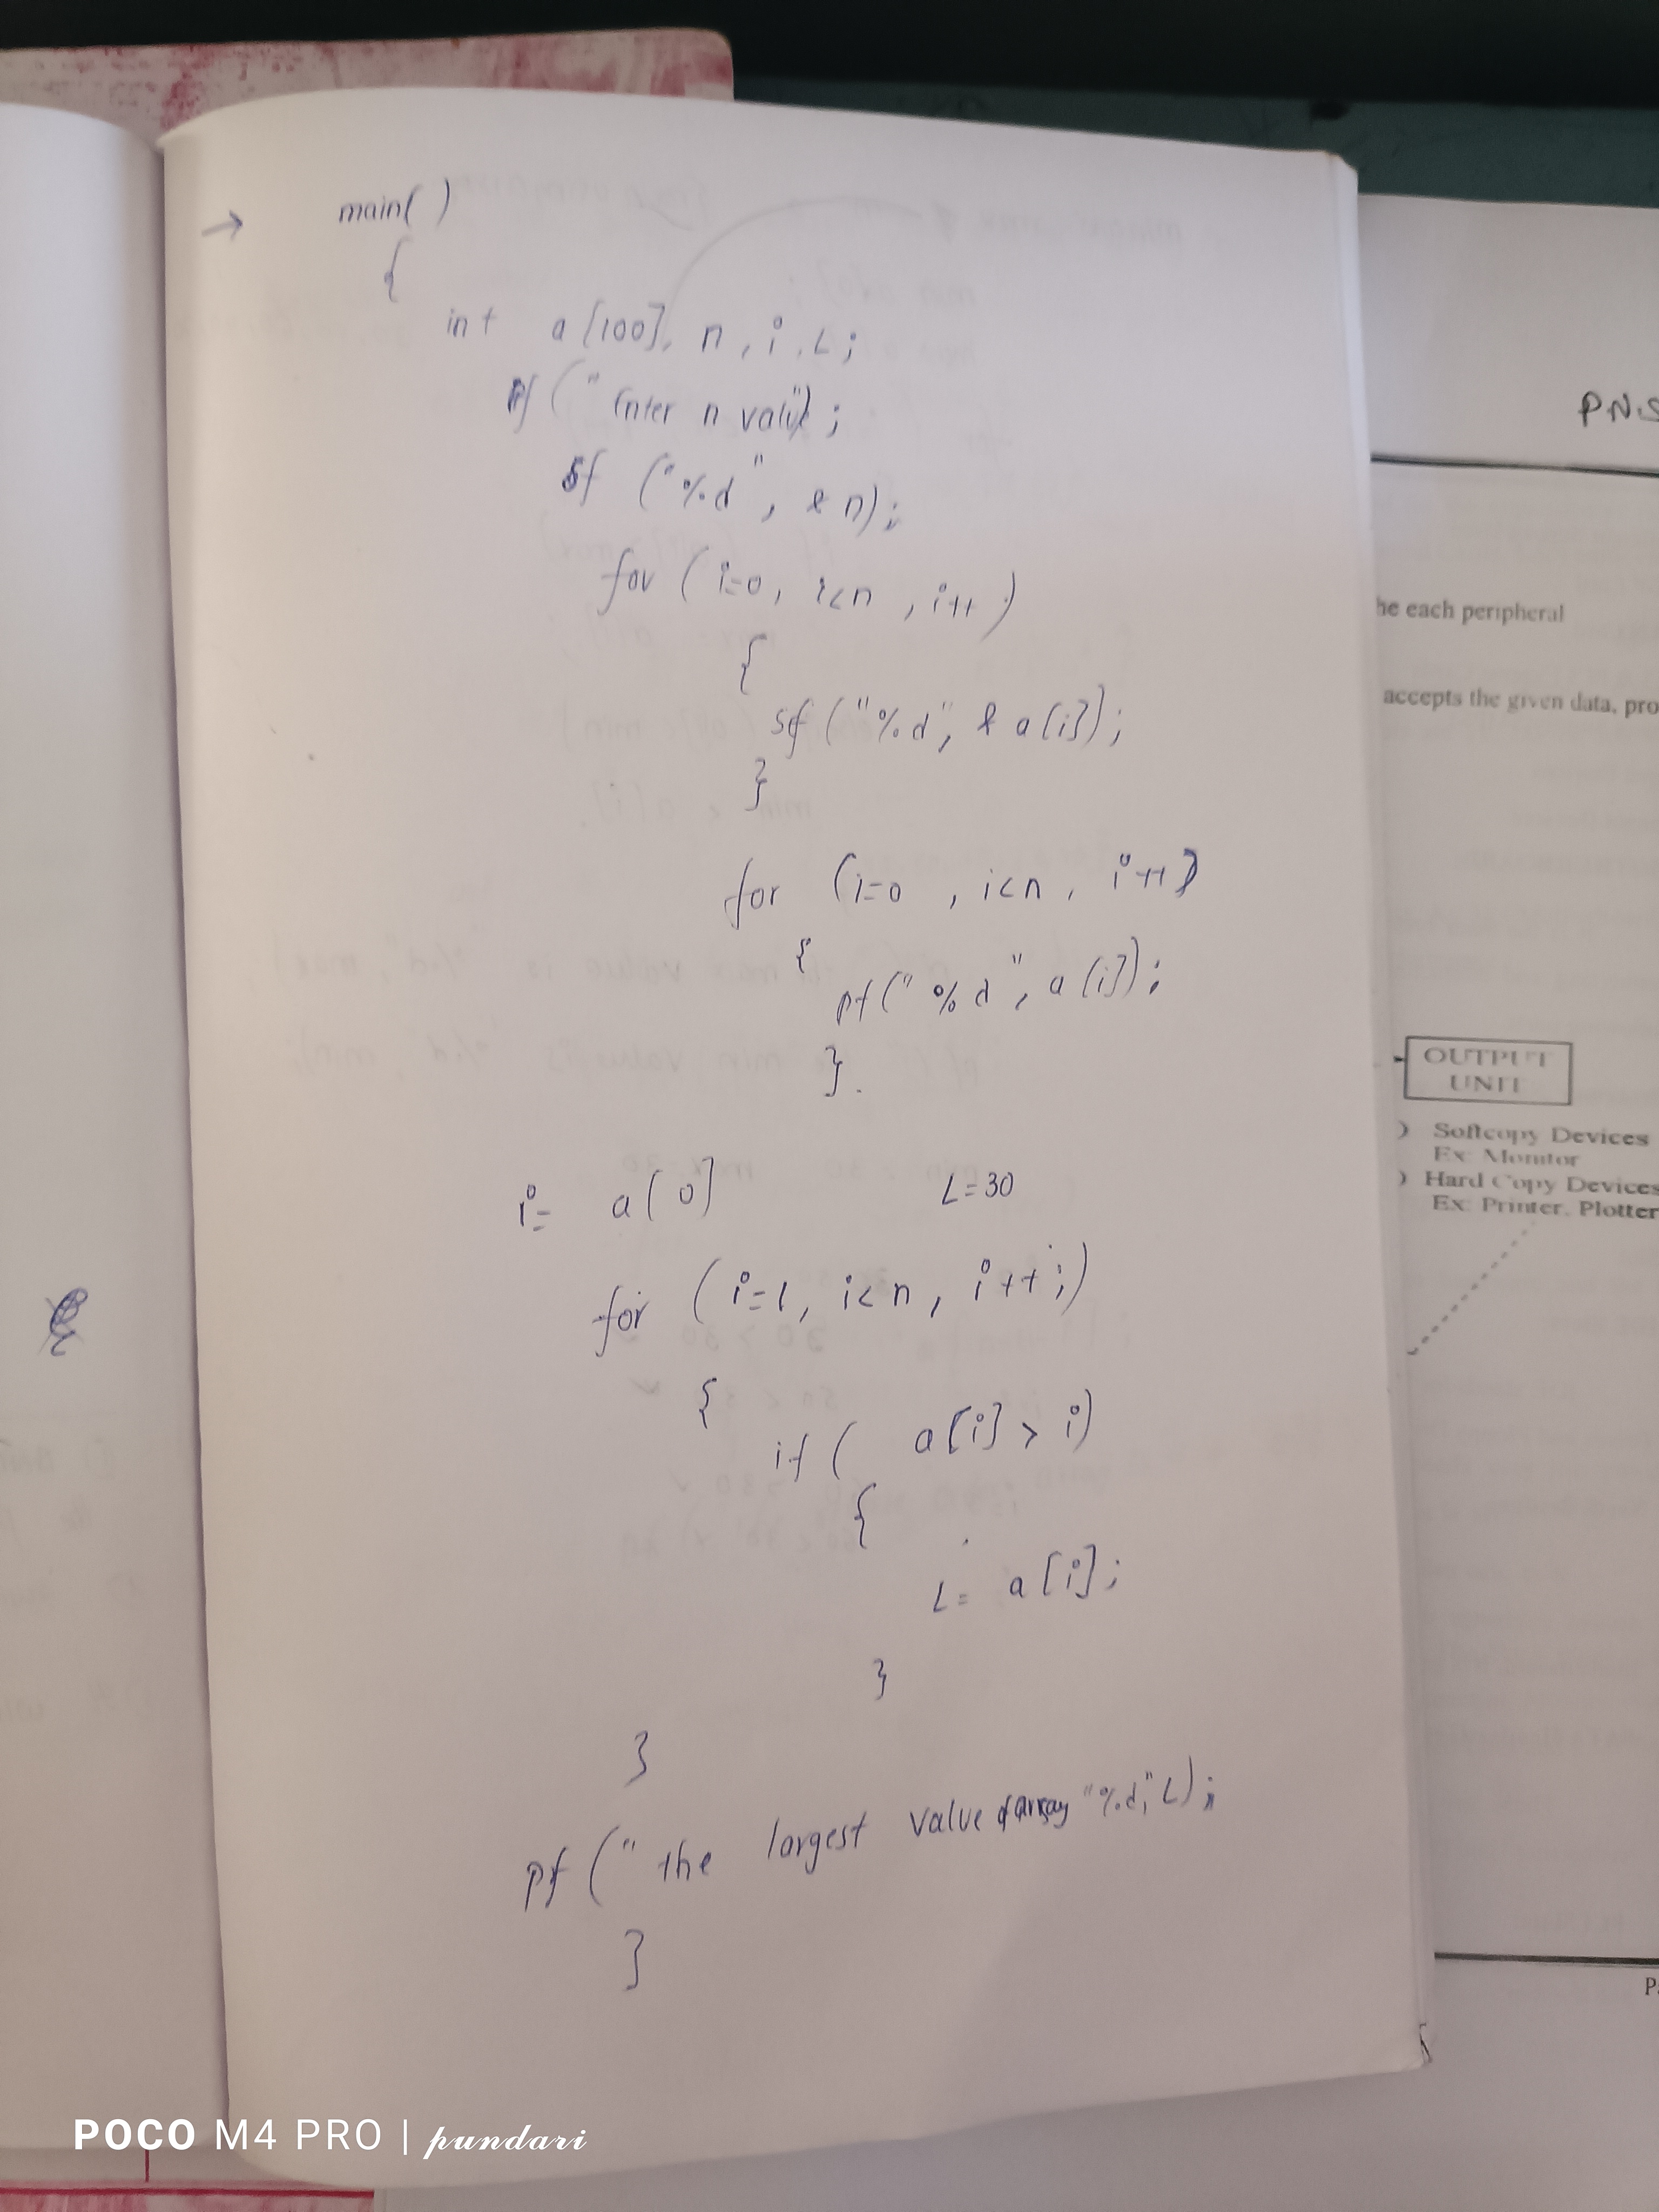 → main( )
{
int a[100], n, i, L;
pf (" Enter n value");
sf ("%d", & n);
for (i=0, i<n, i++)
{
sf ("%d", & a[i]);
}
for (i=0, i<n, i++)
{
pf ("%d", a[i]);
}.
i= a[0] L=30
for (i=1, i<n, i++;)
{
if ( a[i] > i)
{
L= a[i];
}
}
pf (" the largest value of array "%d," L);
}
PN.S
he each peripheral
accepts the given data, pro
OUTPUT
UNIT
) Softcopy Devices
Ex: Monitor
) Hard Copy Devices
Ex: Printer, Plotter
POCO M4 PRO | pundari